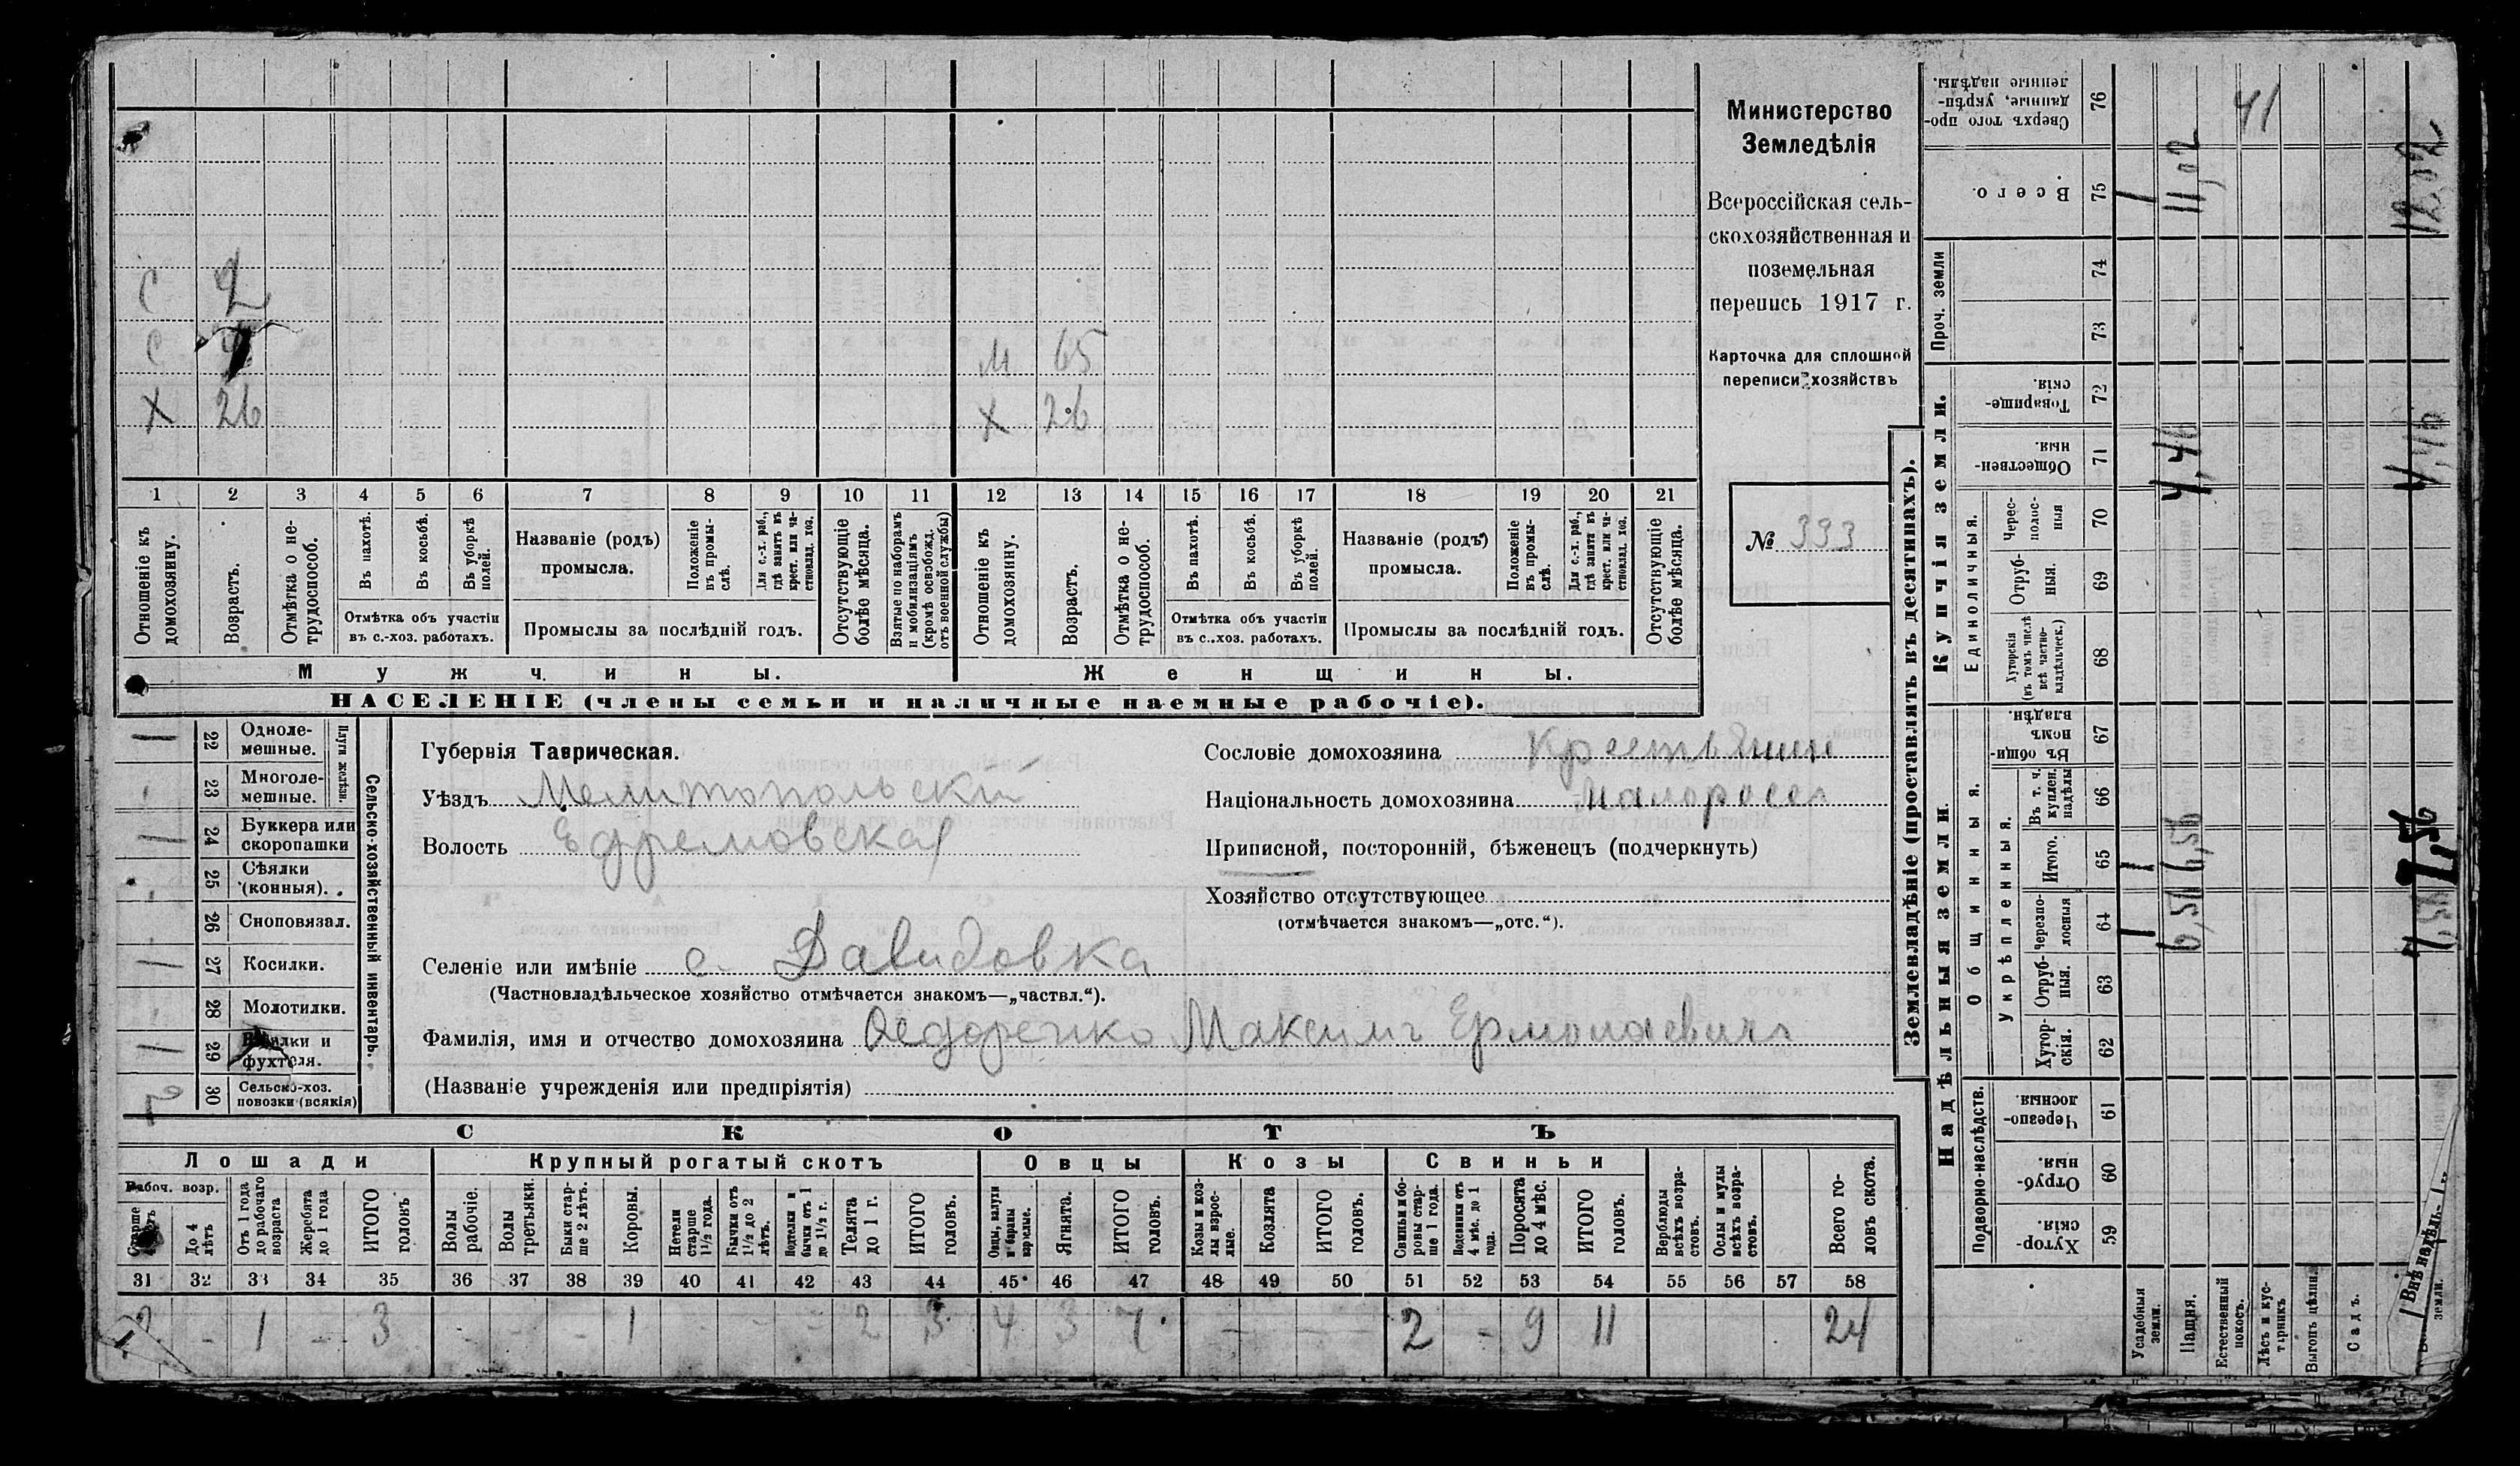 Министерство
Земледѣлія
Всероссійская сель-
скохозяйственная и
поземельная
перепись 1917 г.
Карточка для сплошной
переписи хозяйствъ
№ 333
С 2
С
Х 26
М 65
Х 26
1 2 3 4 5 6 7 8 9 10 11 12 13 14 15 16 17 18 19 20 21
Отношеніе къ домохозяину.
Возрастъ.
Отмѣтка о не-трудоспособ.
Въ пахотѣ.
Въ косьбѣ.
Въ уборкѣ полей.
Отмѣтка объ участіи
въ с.-хоз. работахъ.
Названіе (родъ)
промысла.
Положеніе въ промы-слѣ.
Для с.-х. раб., гдѣ занятъ въ крест. или ча-стновлад. хоз.
Промыслы за послѣдній годъ.
Отсутствующіе болѣе мѣсяца.
Взятые по наборамъ и мобилизаціямъ (кромѣ освобожд. отъ военной службы)
Отношеніе къ домохозяину.
Возрастъ.
Отмѣтка о не-трудоспособ.
Въ пахотѣ.
Въ косьбѣ.
Въ уборкѣ полей.
Отмѣтка объ участіи
въ с..хоз. работахъ.
Названіе (родъ)
промысла.
Положеніе въ промы-слѣ.
Для с.-х. раб., гдѣ занята въ крест. или ча-стновлад. хоз.
Промыслы за послѣдній годъ.
Отсутствующіе болѣе мѣсяца.
Мужчины.
Женщины.
НАСЕЛЕНІЕ (члены семьи и наличные наемные рабочіе).
Сельско-хозяйственный инвентарь.
Плуги желѣзн.
1 22 Одноле-мешные.
- 23 Многоле-мешные.
1 24 Буккера или скоропашки
25 Сѣялки (конныя).
- 26 Сноповязал.
1 27 Косилки.
- 28 Молотилки.
1 29 Вѣялки и фухтеля.
2 30 Сельско-хоз. повозки (всякія)
Губернія Таврическая.
Уѣздъ Мелитопольскій
Волость Ефремовская
Сословіе домохозяина Крестьянин
Національность домохозяина малоросс
Приписной, посторонній, бѣженецъ (подчеркнуть)
Хозяйство отсутствующее
(отмѣчается знакомъ—„отс.“).
Селеніе или имѣніе с. Давидовка
(Частновладѣльческое хозяйство отмѣчается знакомъ—„частвл.“).
Фамилія, имя и отчество домохозяина Федоренко Максимъ Ермолаевичъ
(Названіе учрежденія или предпріятія)
СКОТЪ
Лошади
Рабоч. возр.
Старше
До 4 лѣтъ
Отъ 1 года до рабочаго возраста
Жеребята до 1 года
ИТОГО головъ
Крупный рогатый скотъ
Волы рабочіе.
Волы третьяки.
Быки стар-ше 2 лѣтъ.
Коровы.
Нетели старше 1½ года.
Бычки отъ 1½ до 2 лѣтъ.
Подтелки и бычки отъ 1 до 1½ г.
Телята до 1 г.
ИТОГО головъ.
Овцы
Овцы, валухи и бараны взрослые.
Ягнята.
ИТОГО головъ.
Козы
Козы и коз-лы взрос-лые.
Козлята
ИТОГО головъ.
Свиньи
Свиньи и бо-ровы стар-ше 1 года.
Подсвинки отъ 4 мѣс. до 1 года.
Поросята до 4 мѣс.
ИТОГО головъ.
Верблюды всѣхъ возра-стовъ.
Ослы и мулы всѣхъ возра-стовъ.
Всего го-ловъ скота.
31 32 33 34 35 36 37 38 39 40 41 42 43 44 45 46 47 48 49 50 51 52 53 54 55 56 57 58
2 - 1 - 3 - - - 1 - - - 2 3 4 3 7 - - - 2 - 9 11 24
Землевладѣніе (проставлять въ десятинахъ).
Купчія земли.
Надѣльныя земли.
Сверхъ того про-данные, укрѣп-ленные надѣлы. 76 41
Всего. 75 1 11,02 12,02
Проч. земли
74
73
Товарище-скія. 72
Обществен-ныя. 71 4,46 4,46
Единоличныя.
Черес-полос-ныя 70
Отруб-ныя. 69
Хуторскія (въ томъ числѣ всѣ частно-владѣльческ.) 68
Общинныя.
Въ общи-номъ владѣн. 67
Укрѣпленныя.
Въ т. ч. куплен. надѣлы 66
Итого. 65 1 6,56 7,56
Черезпо-лосныя 64 1 6,56 7,56
Отруб-ныя. 63
Хутор-скія. 62
Подворно-наслѣдств.
Черезпо-лосныя. 61
Отруб-ныя. 60
Хутор-скія. 59
Усадебныя земли.
Пашня.
Естественный покосъ.
Лѣсъ и кус-тарникъ
Выгонъ цѣлина
Садъ.
Внѣ надѣль-
земли.